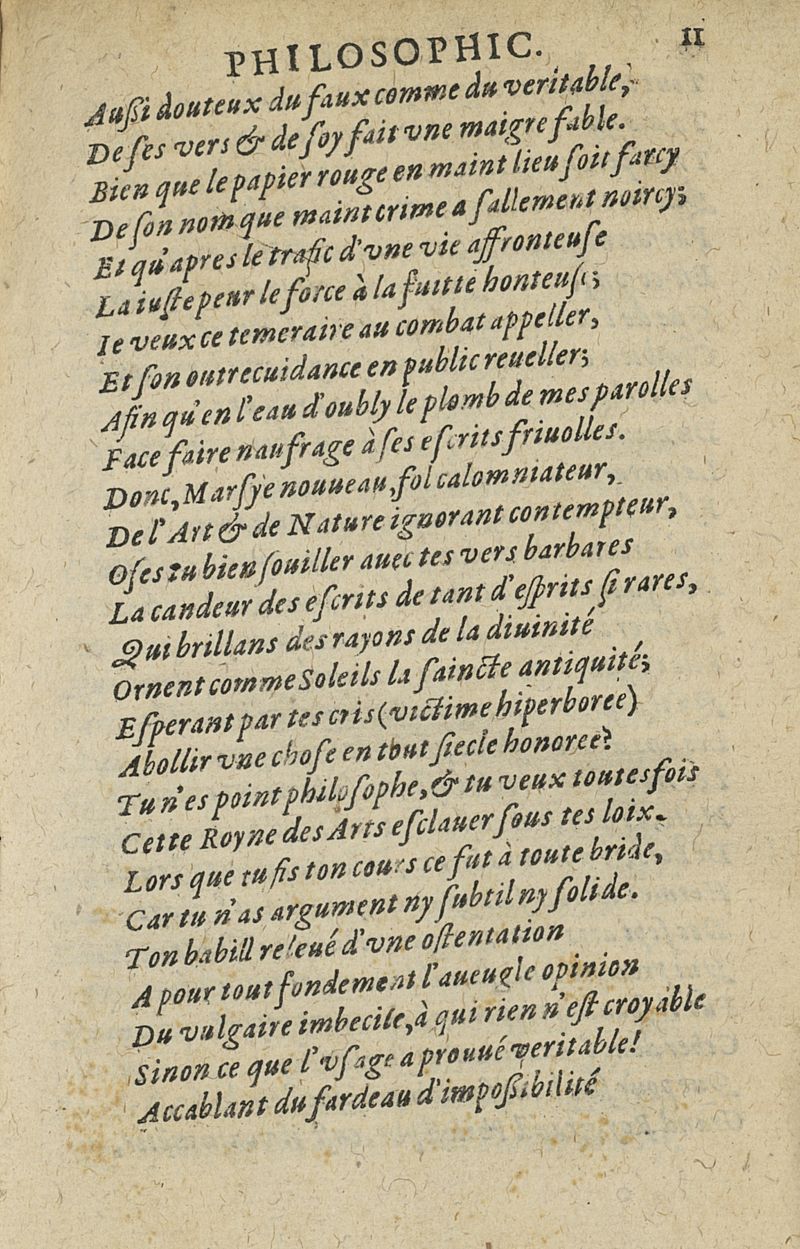 PHILOSOPHIC. 11
Auſſi douteux du faux comme du veritable,
De ſes vers & de ſoy fait vne maigre fable.
Bien que le papier rouge en maint lieu ſoit farcy
De ſon nom que maint crime a ſallement noircy;
Et qu'apres le trafic d'vne vie affronteuſe
La iuſte peur le force à la fuitte honteuſe;
Ie veux ce temeraire au combat appeller,
Et ſon outrecuidance en public reueller;
Afin qu'en l'eau d'oubly le plomb de mes parolles
Face faire naufrage à ſes eſcrits friuolles.
Donc, Marſye nouueau, fol calomniateur,
De l'Art & de Nature ignorant contempteur,
Oſes tu bien ſouiller auec tes vers barbares
La candeur des eſcrits de tant d'eſprits ſi rares,
Qui brillans des rayons de la diuinité
Ornent comme Soleils la ſaincte antiquité;
Eſperant par tes cris (victime hiperboree)
Abollir vne choſe en tout ſiecle honoree?
Tu n'es point philoſophe, & tu veux toutesfois
Cette Royne des Arts eſclauer ſous tes loix.
Lors que tu fis ton cours ce fut à toute bride,
Car tu n'as argument ny ſubtil ny ſolide.
Ton babill releué d'vne oſtentation
A pour tout fondement l'aueugle opinion
Du vulgaire imbecile, à qui rien n'eſt croyable
Sinon ce que l'vſage a prouué veritable!
Accablant du fardeau d'impoſſibilité